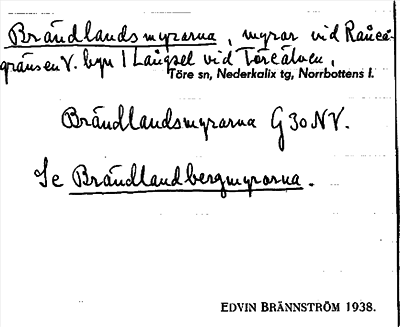 Brändlandsmyrorna, myror vid Råneå-
gränsen V. byn Långsel vid Töreälven,
Töre sn, Nederkalix tg, Norrbottens l.
Brändlandsmyrarna G30NV.
Se Brändlandbergmyrarna.
EDVIN BRÄNNSTRÖM 1938.